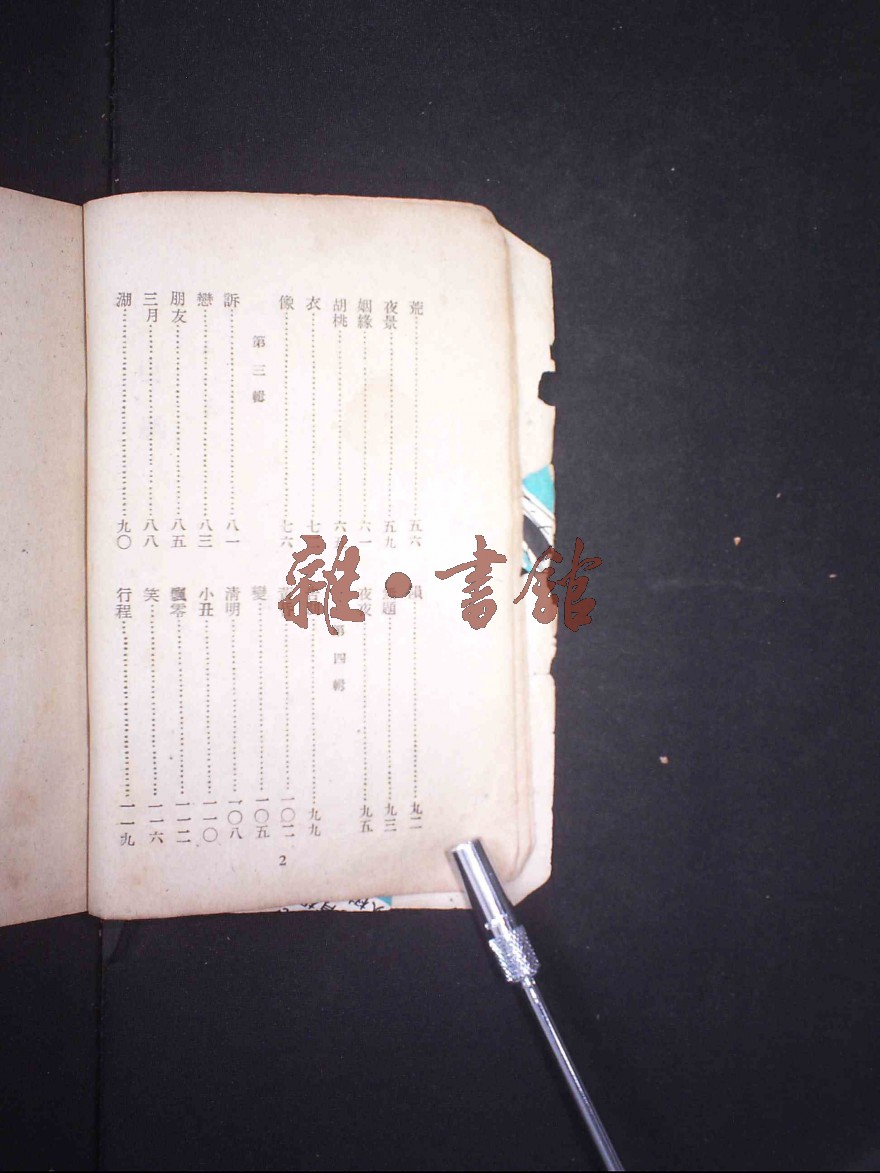 荒……五六
夜景……五九
姻緣……六一
胡桃……六
衣……七
像……七六
第三輯
訴……八一
戀……八三
朋友……八五
三月……八八
湖……九〇
……九二
題……九三
夜夜……九五
第四輯
……九九
……一〇二
變……一〇五
清明……一〇八
小丑……一一〇
飄零……一一二
笑……一一六
行程……一一九
2
雜·書館